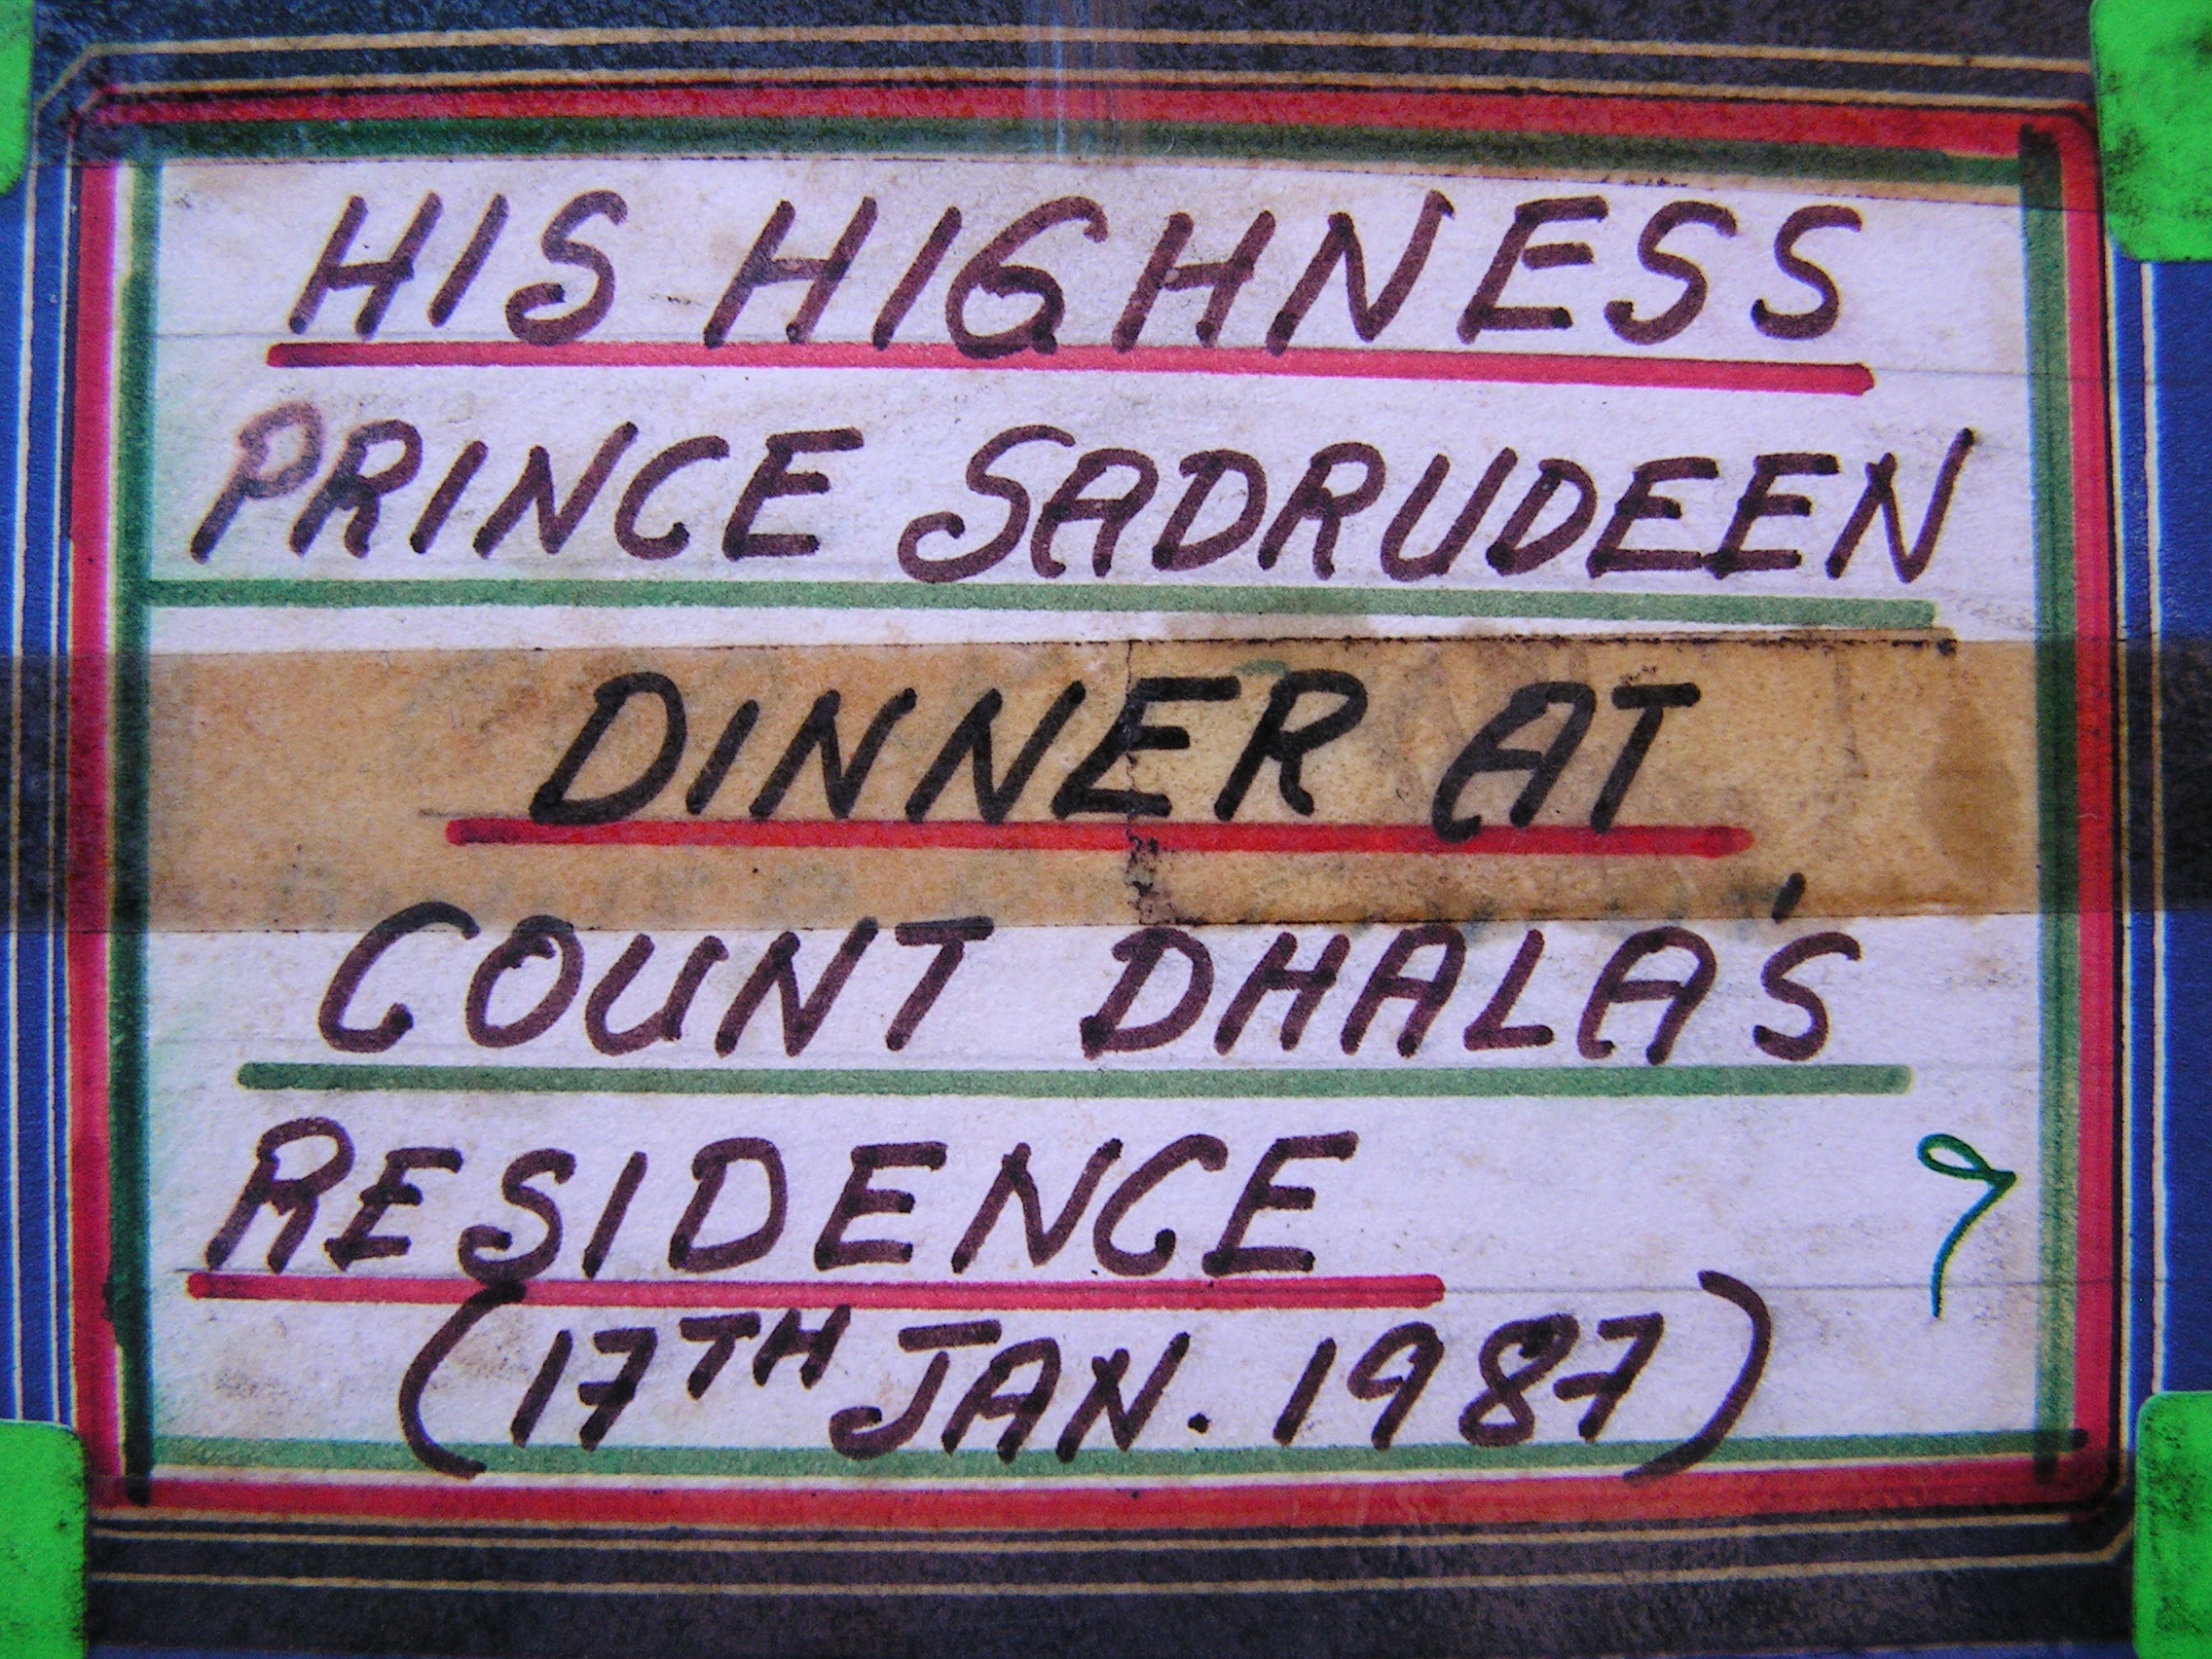 HIS HIGHNESS
PRINCE SADRUDEEN
DINNER AT
COUNT DHALA'S
RESIDENCE
(17TH JAN. 1987)